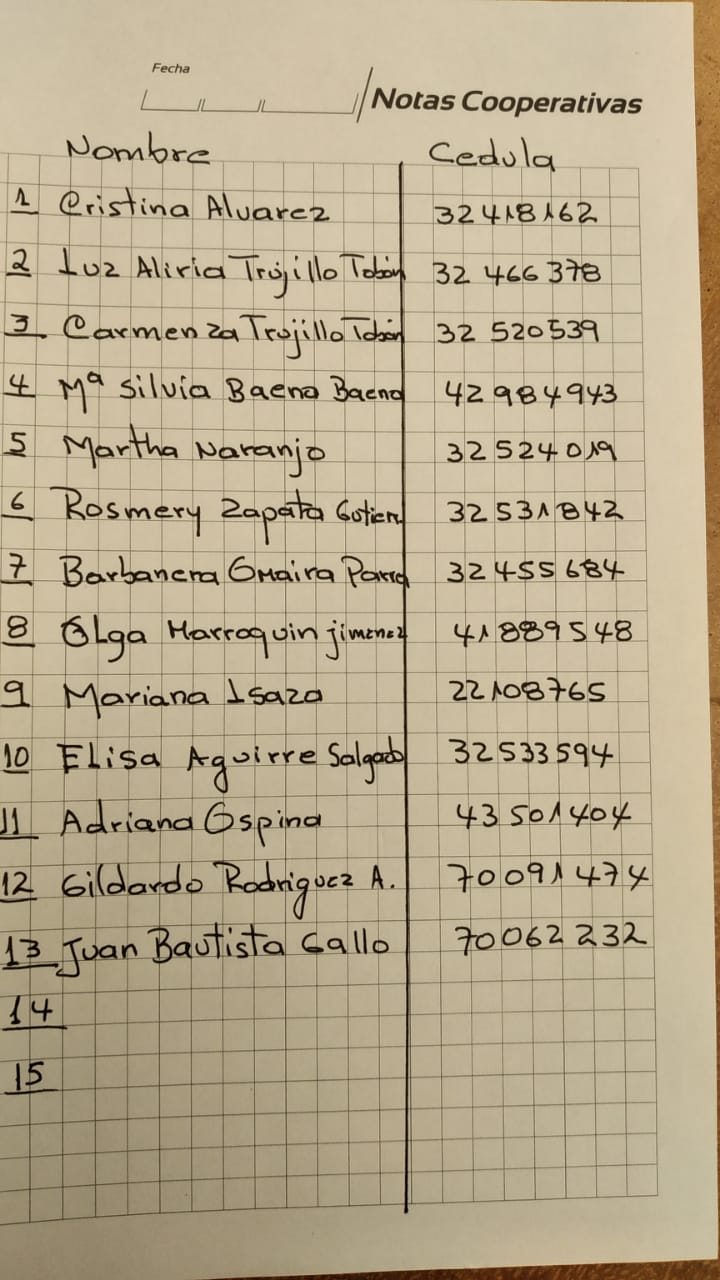 Fecha
Notas Cooperativas
Nombre Cedula
1 Cristina Alvarez 32418162
2 Luz Aliria Trujillo Tobón 32 466 378
3 Carmenza Trujillo Tobón 32 520539
4 Mª Silvia Baena Baena 42 984943
5 Martha Naranjo 32524019
6 Rosmery Zapata Gutierr 32531842
7 Barbanera Omaira Parra 32455684
8 Olga Marroquin jimenez 41889548
9 Mariana Isaza 22108765
10 Elisa Aguirre Salgado 32533594
11 Adriana Ospina 43501404
12 Gildardo Rodriguez A. 70091474
13 Juan Bautista Gallo 70062232
14
15